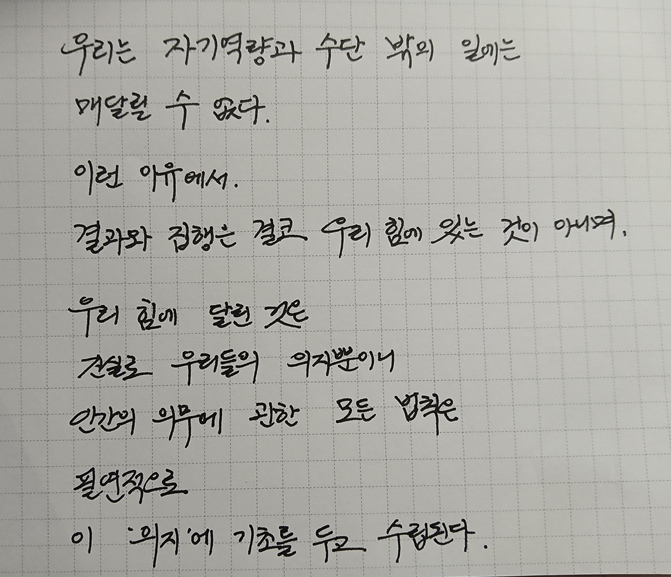 우리는 자기역량과 수단 밖의 일에는
매달릴 수 없다.
이런 이유에서.
결과와 집행은 결코 우리 힘에 있는 것이 아니며,
우리 힘에 달린 것은
진실로 우리들의 의지뿐이니
인간의 의무에 관한 모든 법칙은
필연적으로
이 '의지'에 기초를 두고 수립된다.